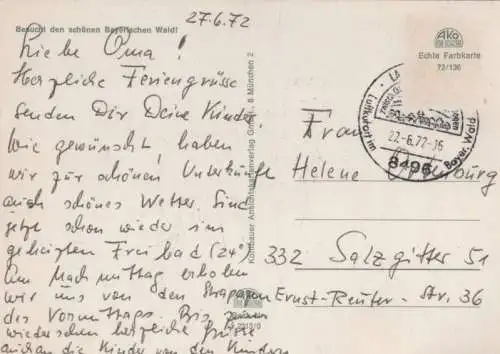 27.6.72
Besucht den schönen Bayerischen Wald!
Liebe Oma!
Herzliche Feriengrüsse
senden Dir Deine Kinder
Wie gewünscht, haben
wir zur schönen Unterkunft
auch schönes Wetter. Sind
jetzt schon wieder im
geheizten Freibad (24°)
Am Nachmittag erholen
wir uns von den Strapazen
des Vormittags. Bis
wiedersehen herzliche Grüsse
auch an die Kinder von den Kindern
8 München 2
Ako
Echte Farbkarte
72/136
Luftkurort im Bayer. Wald
22.-6.72-16
8496
Frau
Helene
332 Salzgitter 51
Ernst-Reuter-Str. 36